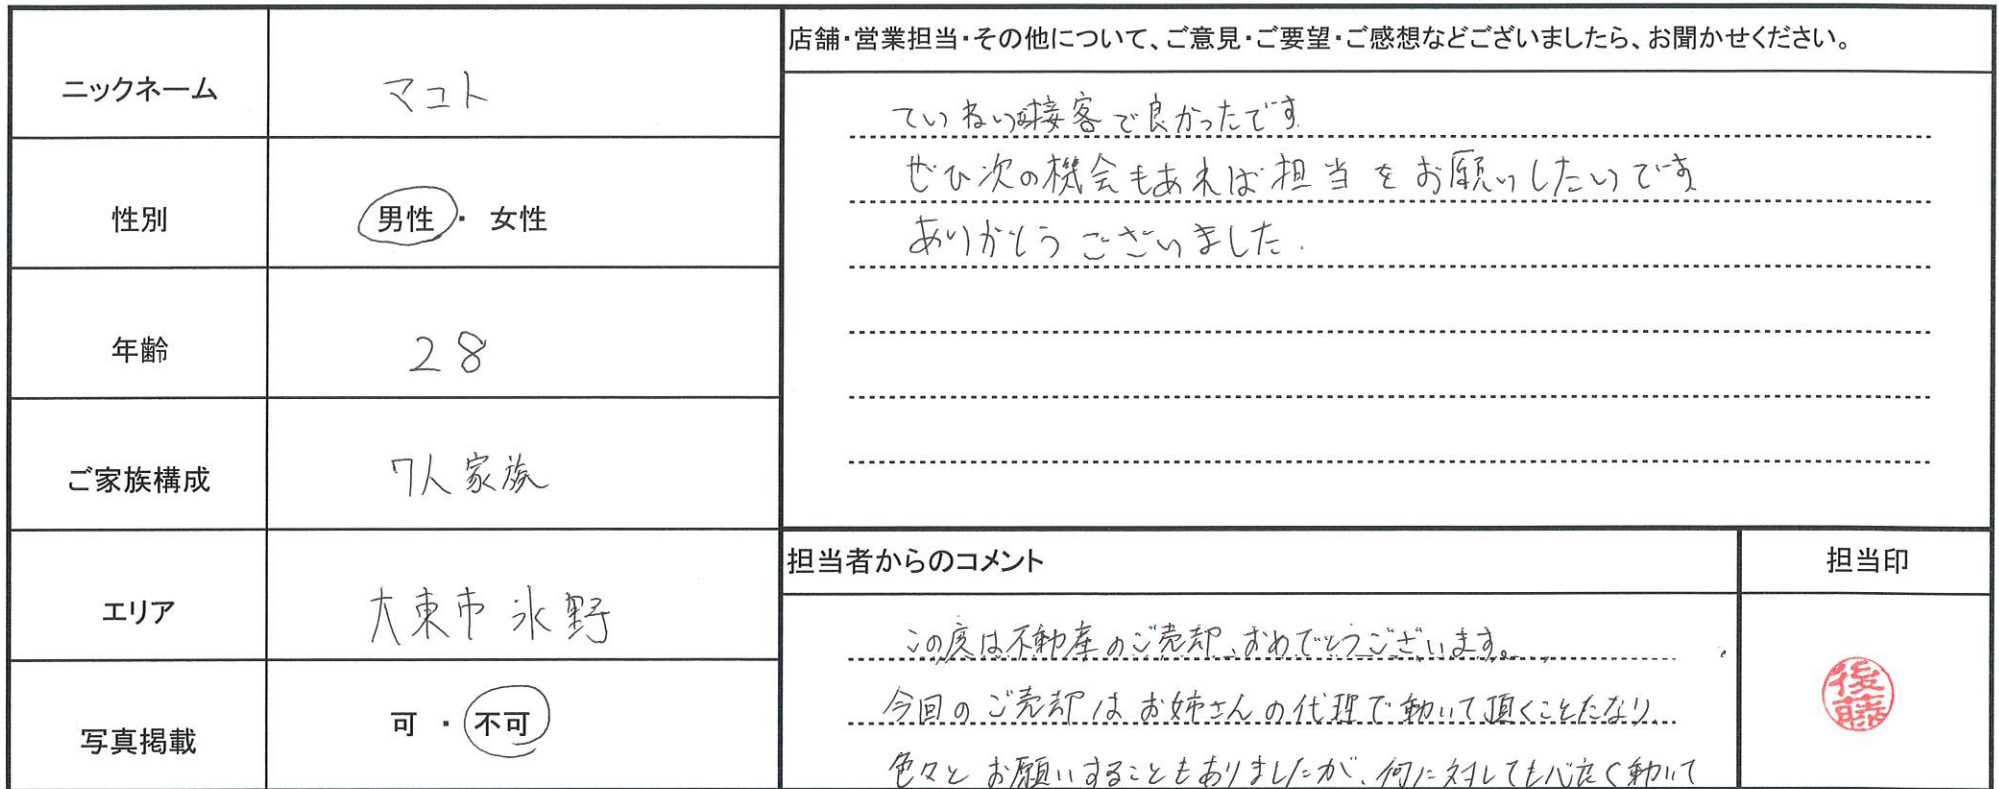 ニックネーム
マコト
性別
男性・女性
年齢
28
ご家族構成
7人家族
エリア
大東市 氷野
写真掲載
可・不可
店舗・営業担当・その他について、ご意見・ご要望・ご感想などございましたら、お聞かせください。
ていねいな接客で良かったです
ぜひ次の機会もあれば担当をお願いしたいです
ありがとうございました.
担当者からのコメント
この度は不動産のご売却、おめでとうございます。
今回のご売却はお姉さんの代理で動いて頂くことになり
色々とお願いすることもありましたが、何に対しても心良く動いて
担当印
後藤